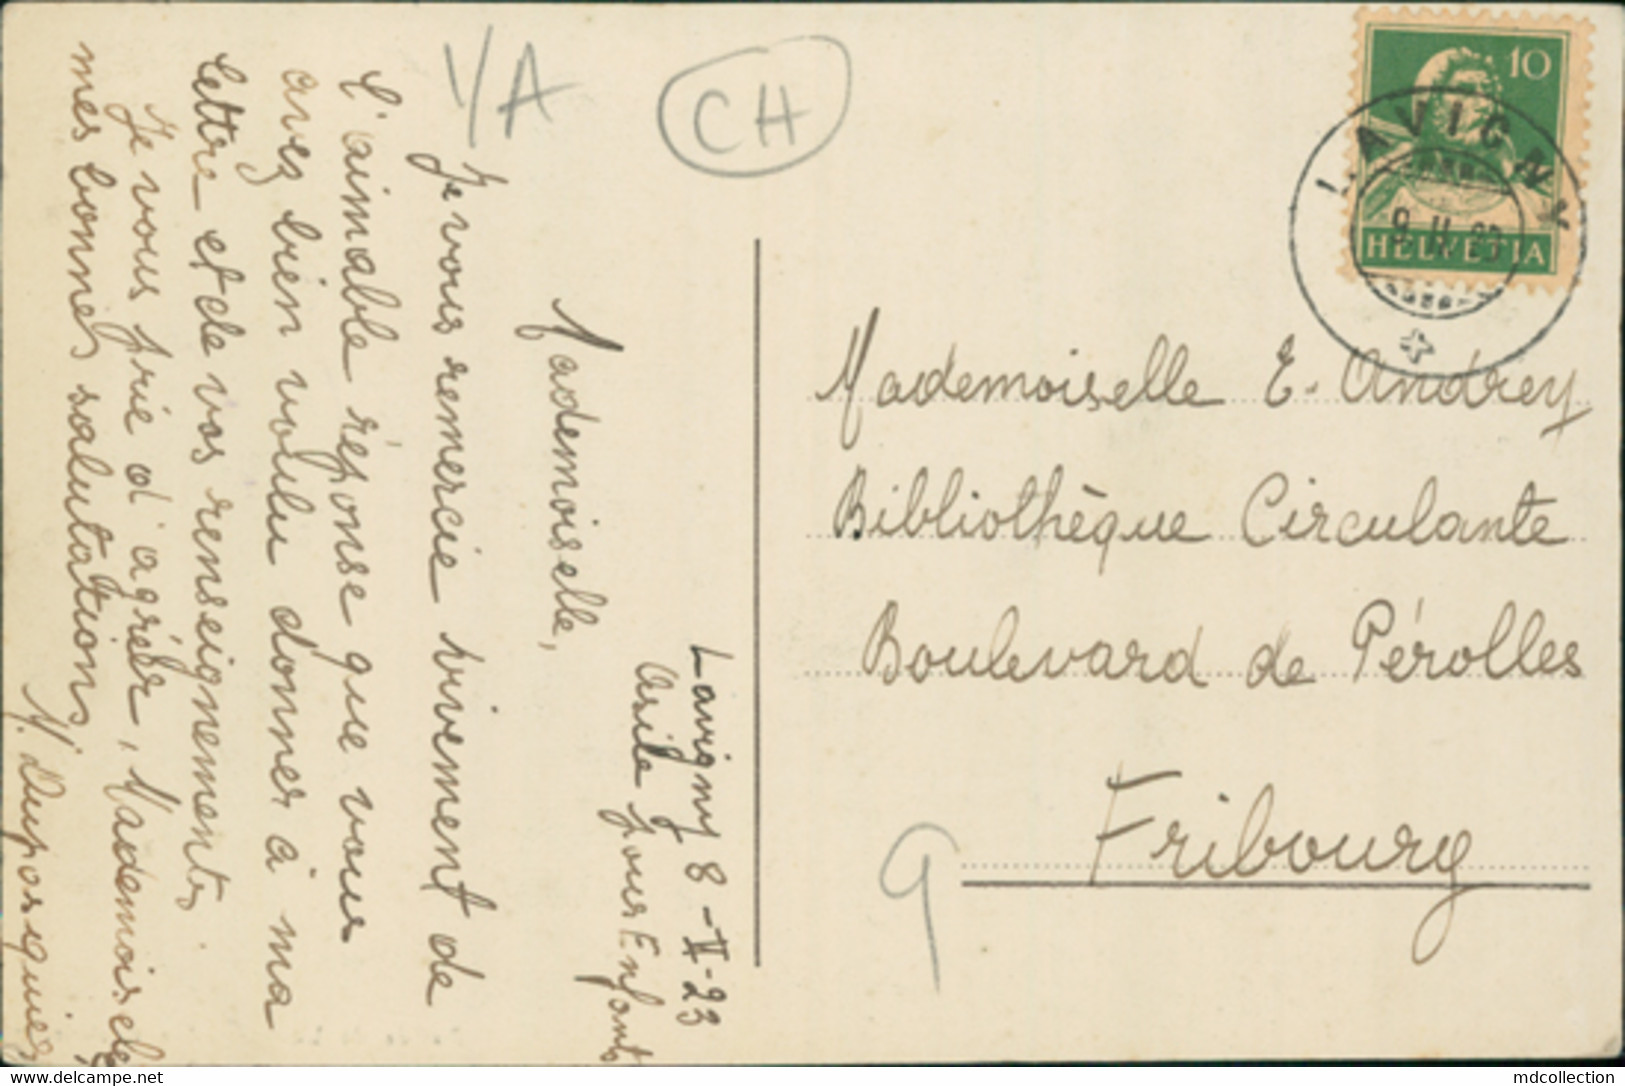 1/A
CH
10
HELVETIA
LAVIGNY
9. II. 23
Lavigny 8-II-23
Asile pour Enfants
Mademoiselle,
Je vous remercie vivement de
l'aimable réponse que vous
avez bien voulu donner à ma
lettre et de vos renseignements.
Je vous prie d'agréer, Mademoiselle,
mes bonnes salutations
Mademoiselle E. Andrey
Bibliothèque Circulante
Boulevard de Pérolles
Fribourg
9
www.delcampe.net
mdcollection